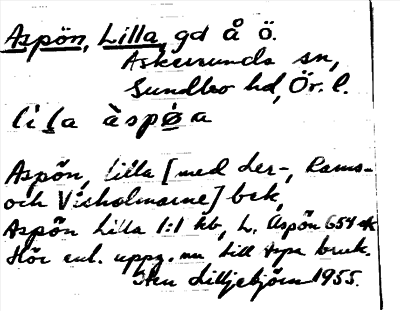 Aspön, Lilla, gd å ö.
Askersunds sn,
Sundbo hd, Ör. l.
lila àspøa
Aspön, lilla [med Ler-, Rams-
och Visholmarne] bek,
Aspön Lilla 1:1 kb, L. Aspön 654 ek
Hör enl. uppg. nu till Aspa bruk.
Sten Lilljebjörn 1955.